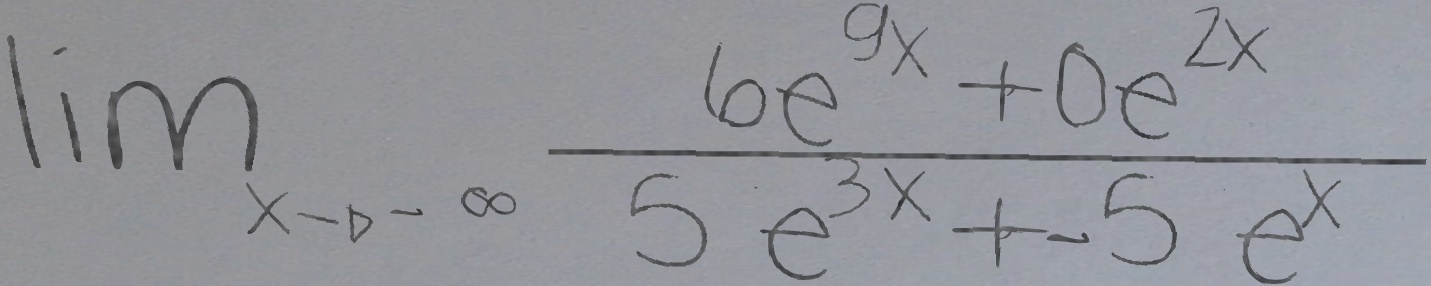 \lim_{x \to -\infty} \frac{6e^{9x}+0e^{2x}}{5e^{3x}+-5e^{x}}